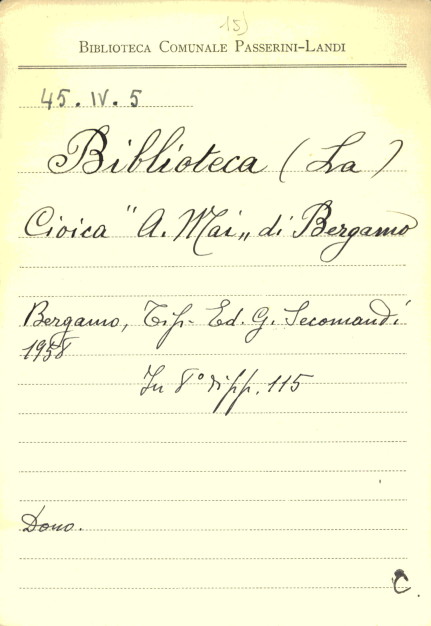 15)
BIBLIOTECA COMUNALE PASSERINI-LANDI
45. IV. 5
Biblioteca (La)
Civica "A. Mai„ di Bergamo
Bergamo, Tip. Ed. G. Secomandi
1958
In 8° di pp. 115
Dono.
C.